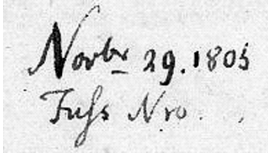 Novbr 29. 1805
Fuſs Nro.